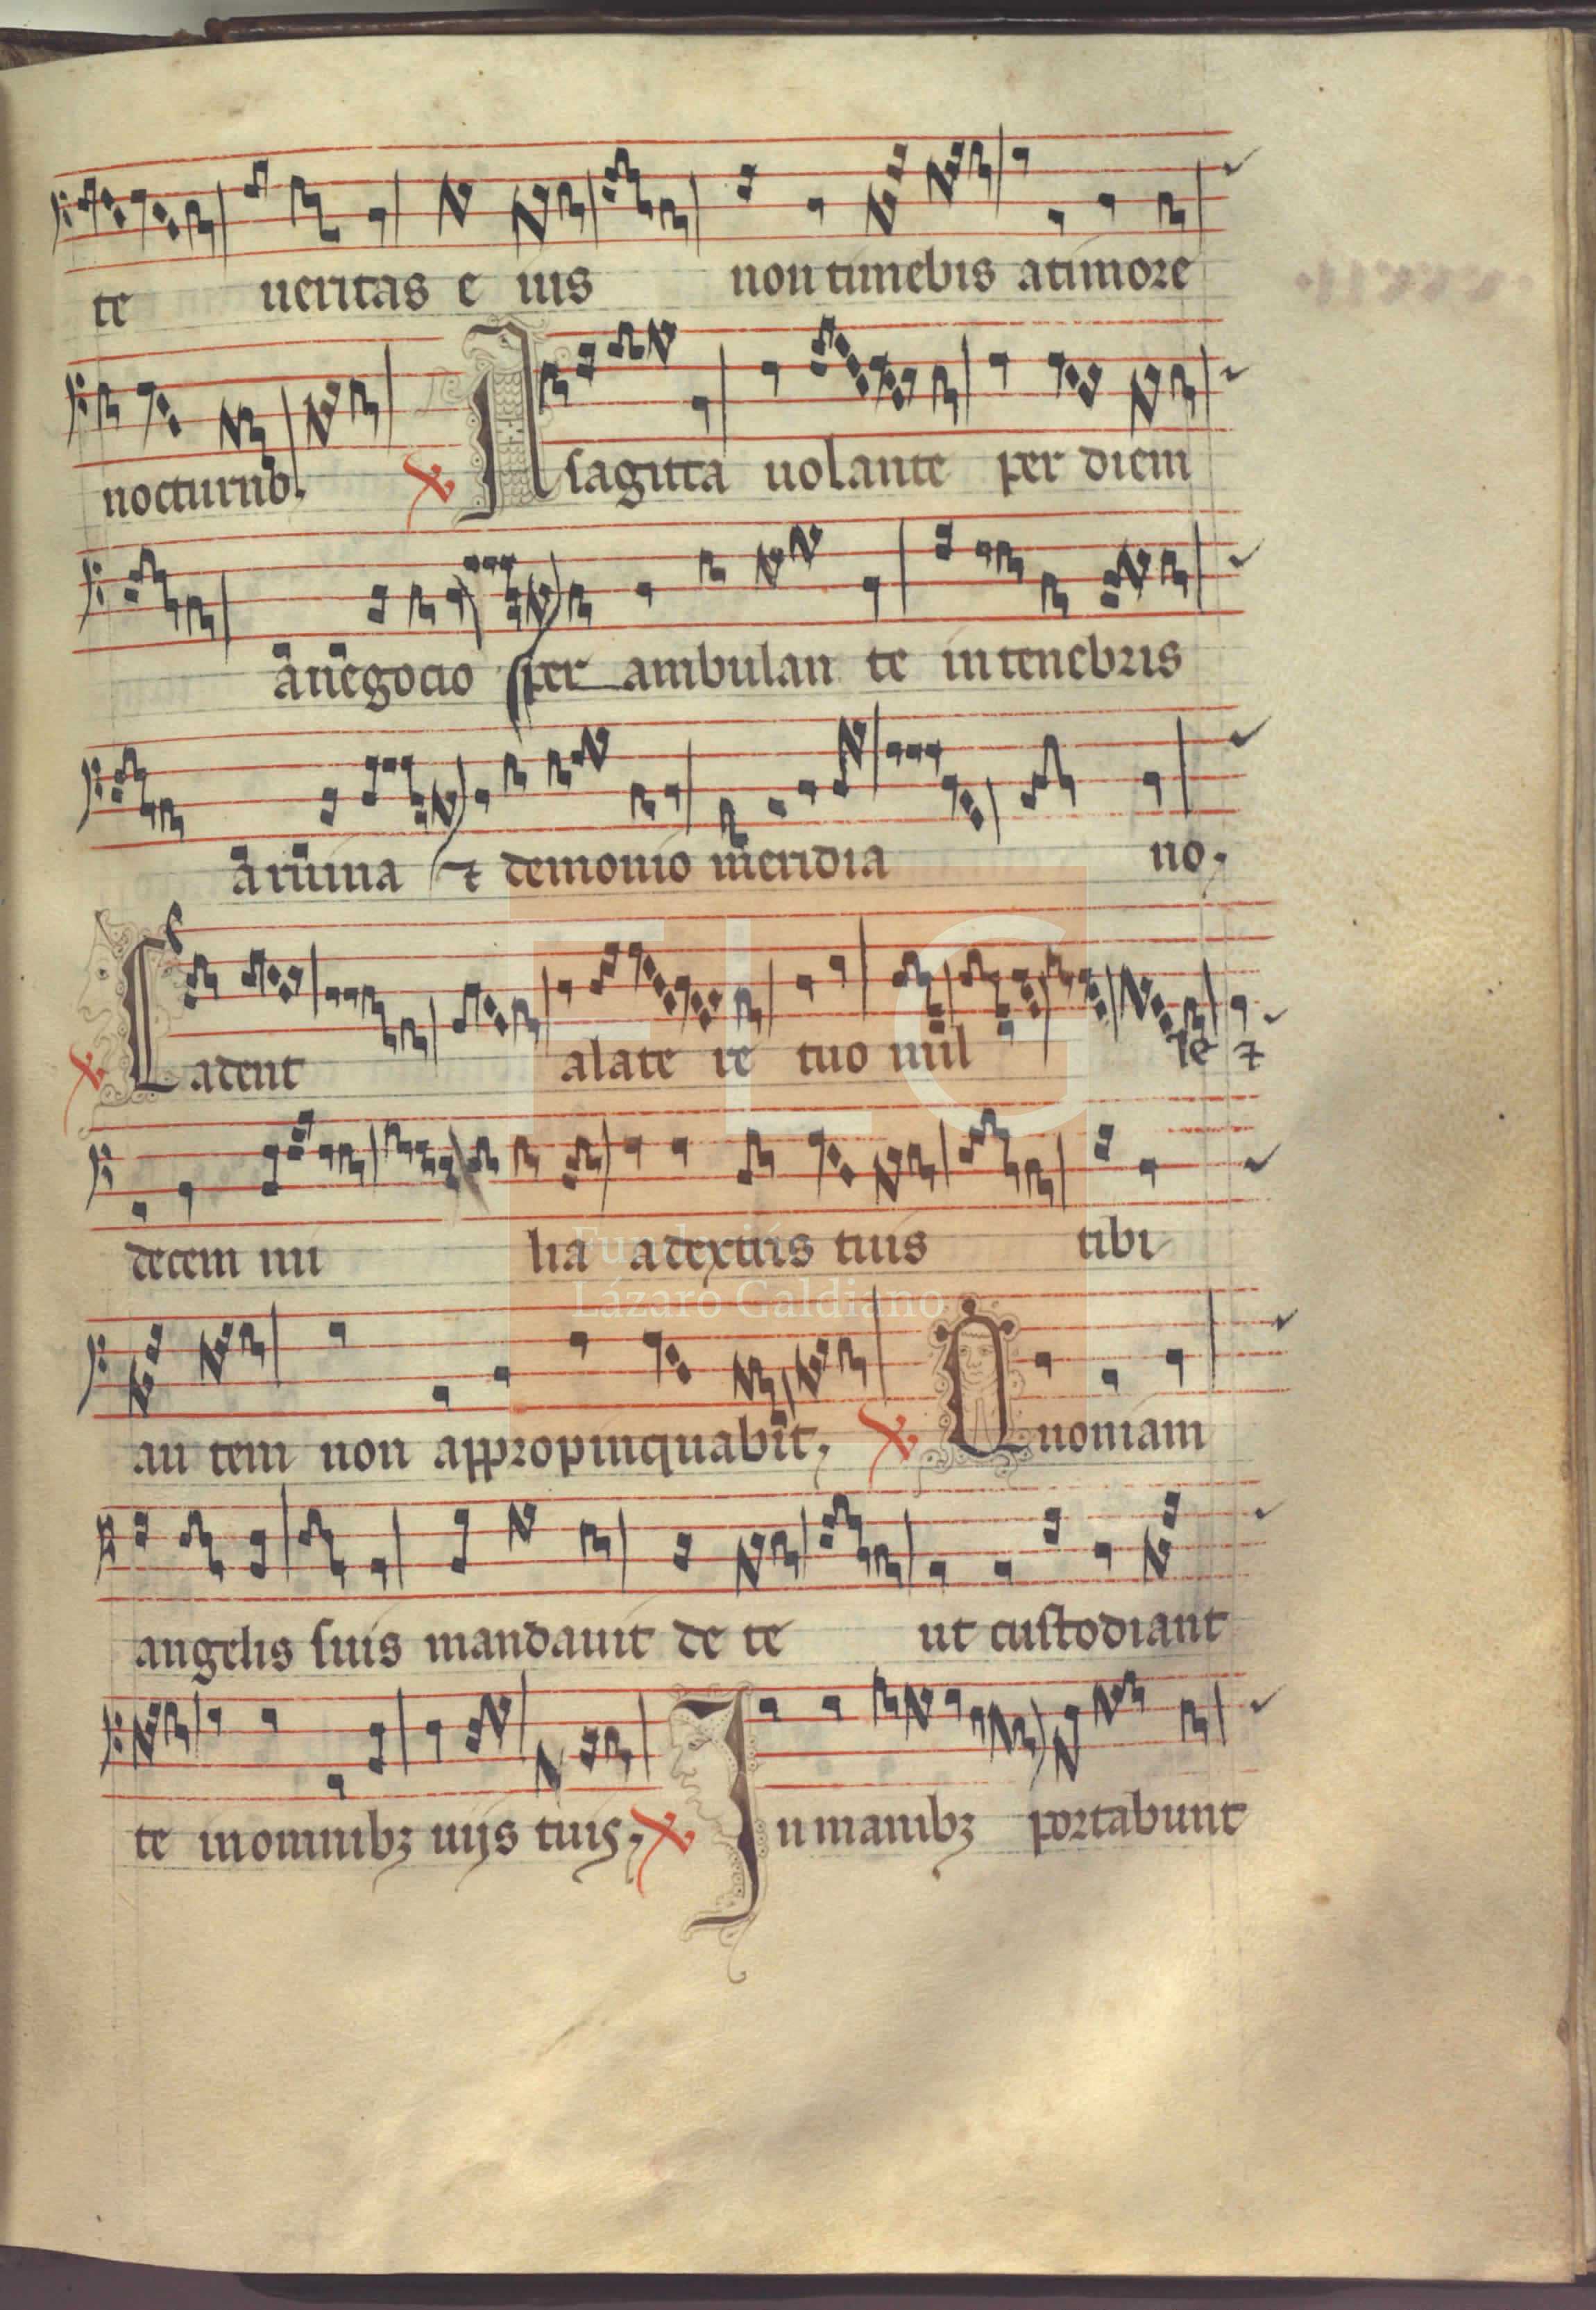 te ueritas e ius non timebis a timore
nocturnꝰ. A sagitta uolante per diem
a negocio per ambulan te in tenebris
a ruina ⁊ demonio meridia no.
Cadent a late re tuo mil le ⁊
decem mi lia a dextris tuis tibi
au tem non appropinquabit. Quoniam
angelis suis mandauit de te ut custodiant
te in omnibꝫ uijs tuis. In manibꝫ portabunt
FLG
Fundación
Lázaro Galdiano